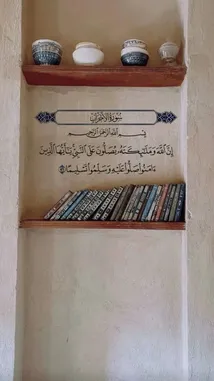 سُورَةُ الأَحْزَابِ
بِسْمِ اللَّهِ الرَّحْمَٰنِ الرَّحِيمِ
إِنَّ اللَّهَ وَمَلَٰٓئِكَتَهُۥ يُصَلُّونَ عَلَى النَّبِيِّ يَٰٓأَيُّهَا الَّذِينَ
ءَامَنُوا۟ صَلُّوا۟ عَلَيْهِ وَسَلِّمُوا۟ تَسْلِيمًا